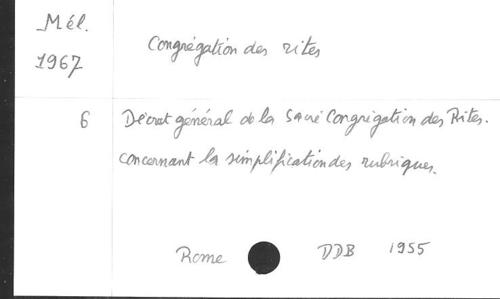 Mél.
1967
Congrégation des rites
6 Décret général de la Sacré Congrégation des Rites.
concernant la simplification des rubriques.
Rome DDB 1955